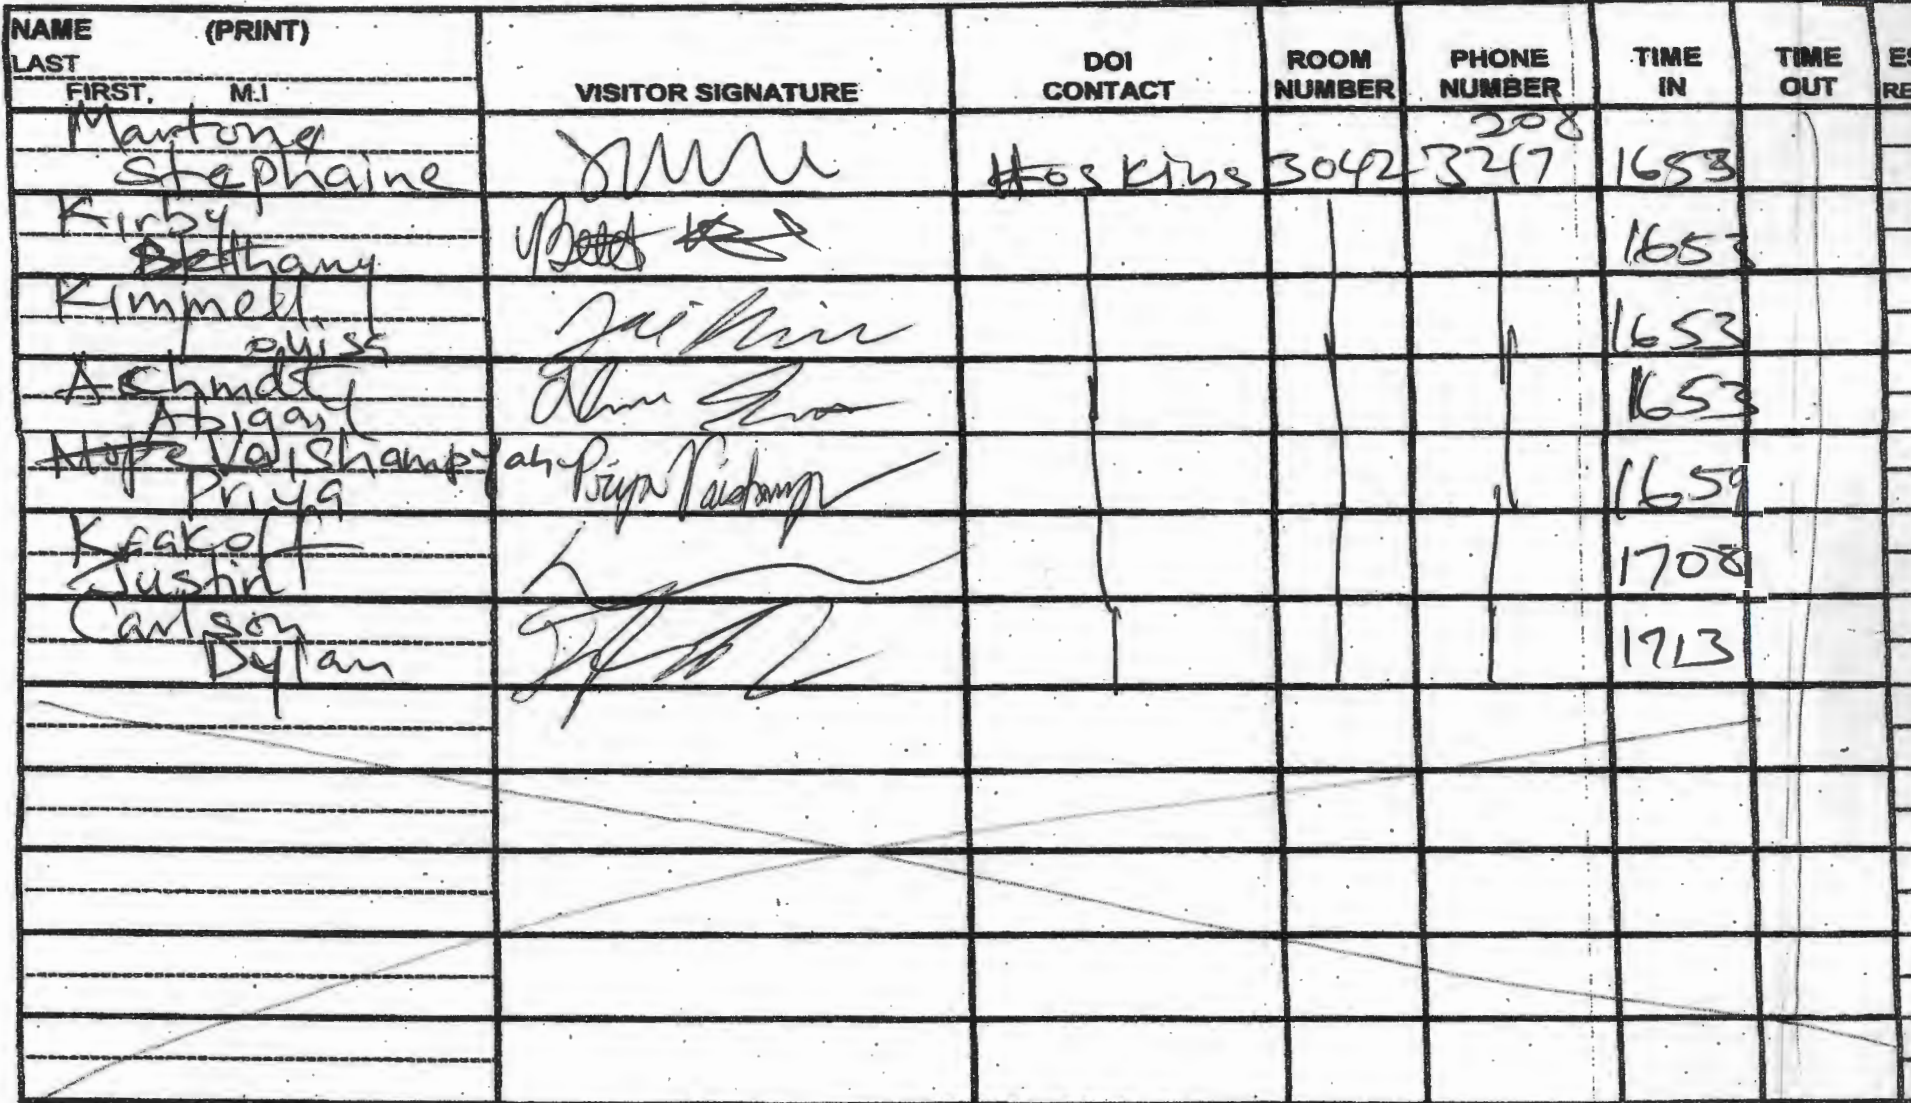 NAME (PRINT)
LAST
FIRST, M.I
VISITOR SIGNATURE
DOI CONTACT
ROOM NUMBER
PHONE NUMBER
TIME IN
TIME OUT
ES
RE
Martone
208
Stephaine Hoskins 3042 3217 1653
Kirby
Bethany 1653
Kimmell
Louisa 1653
Abigail 1653
Vaishampayan Priya Vaishamp
Priya 1659
Justin 1708
Carlson
Dylan 1713